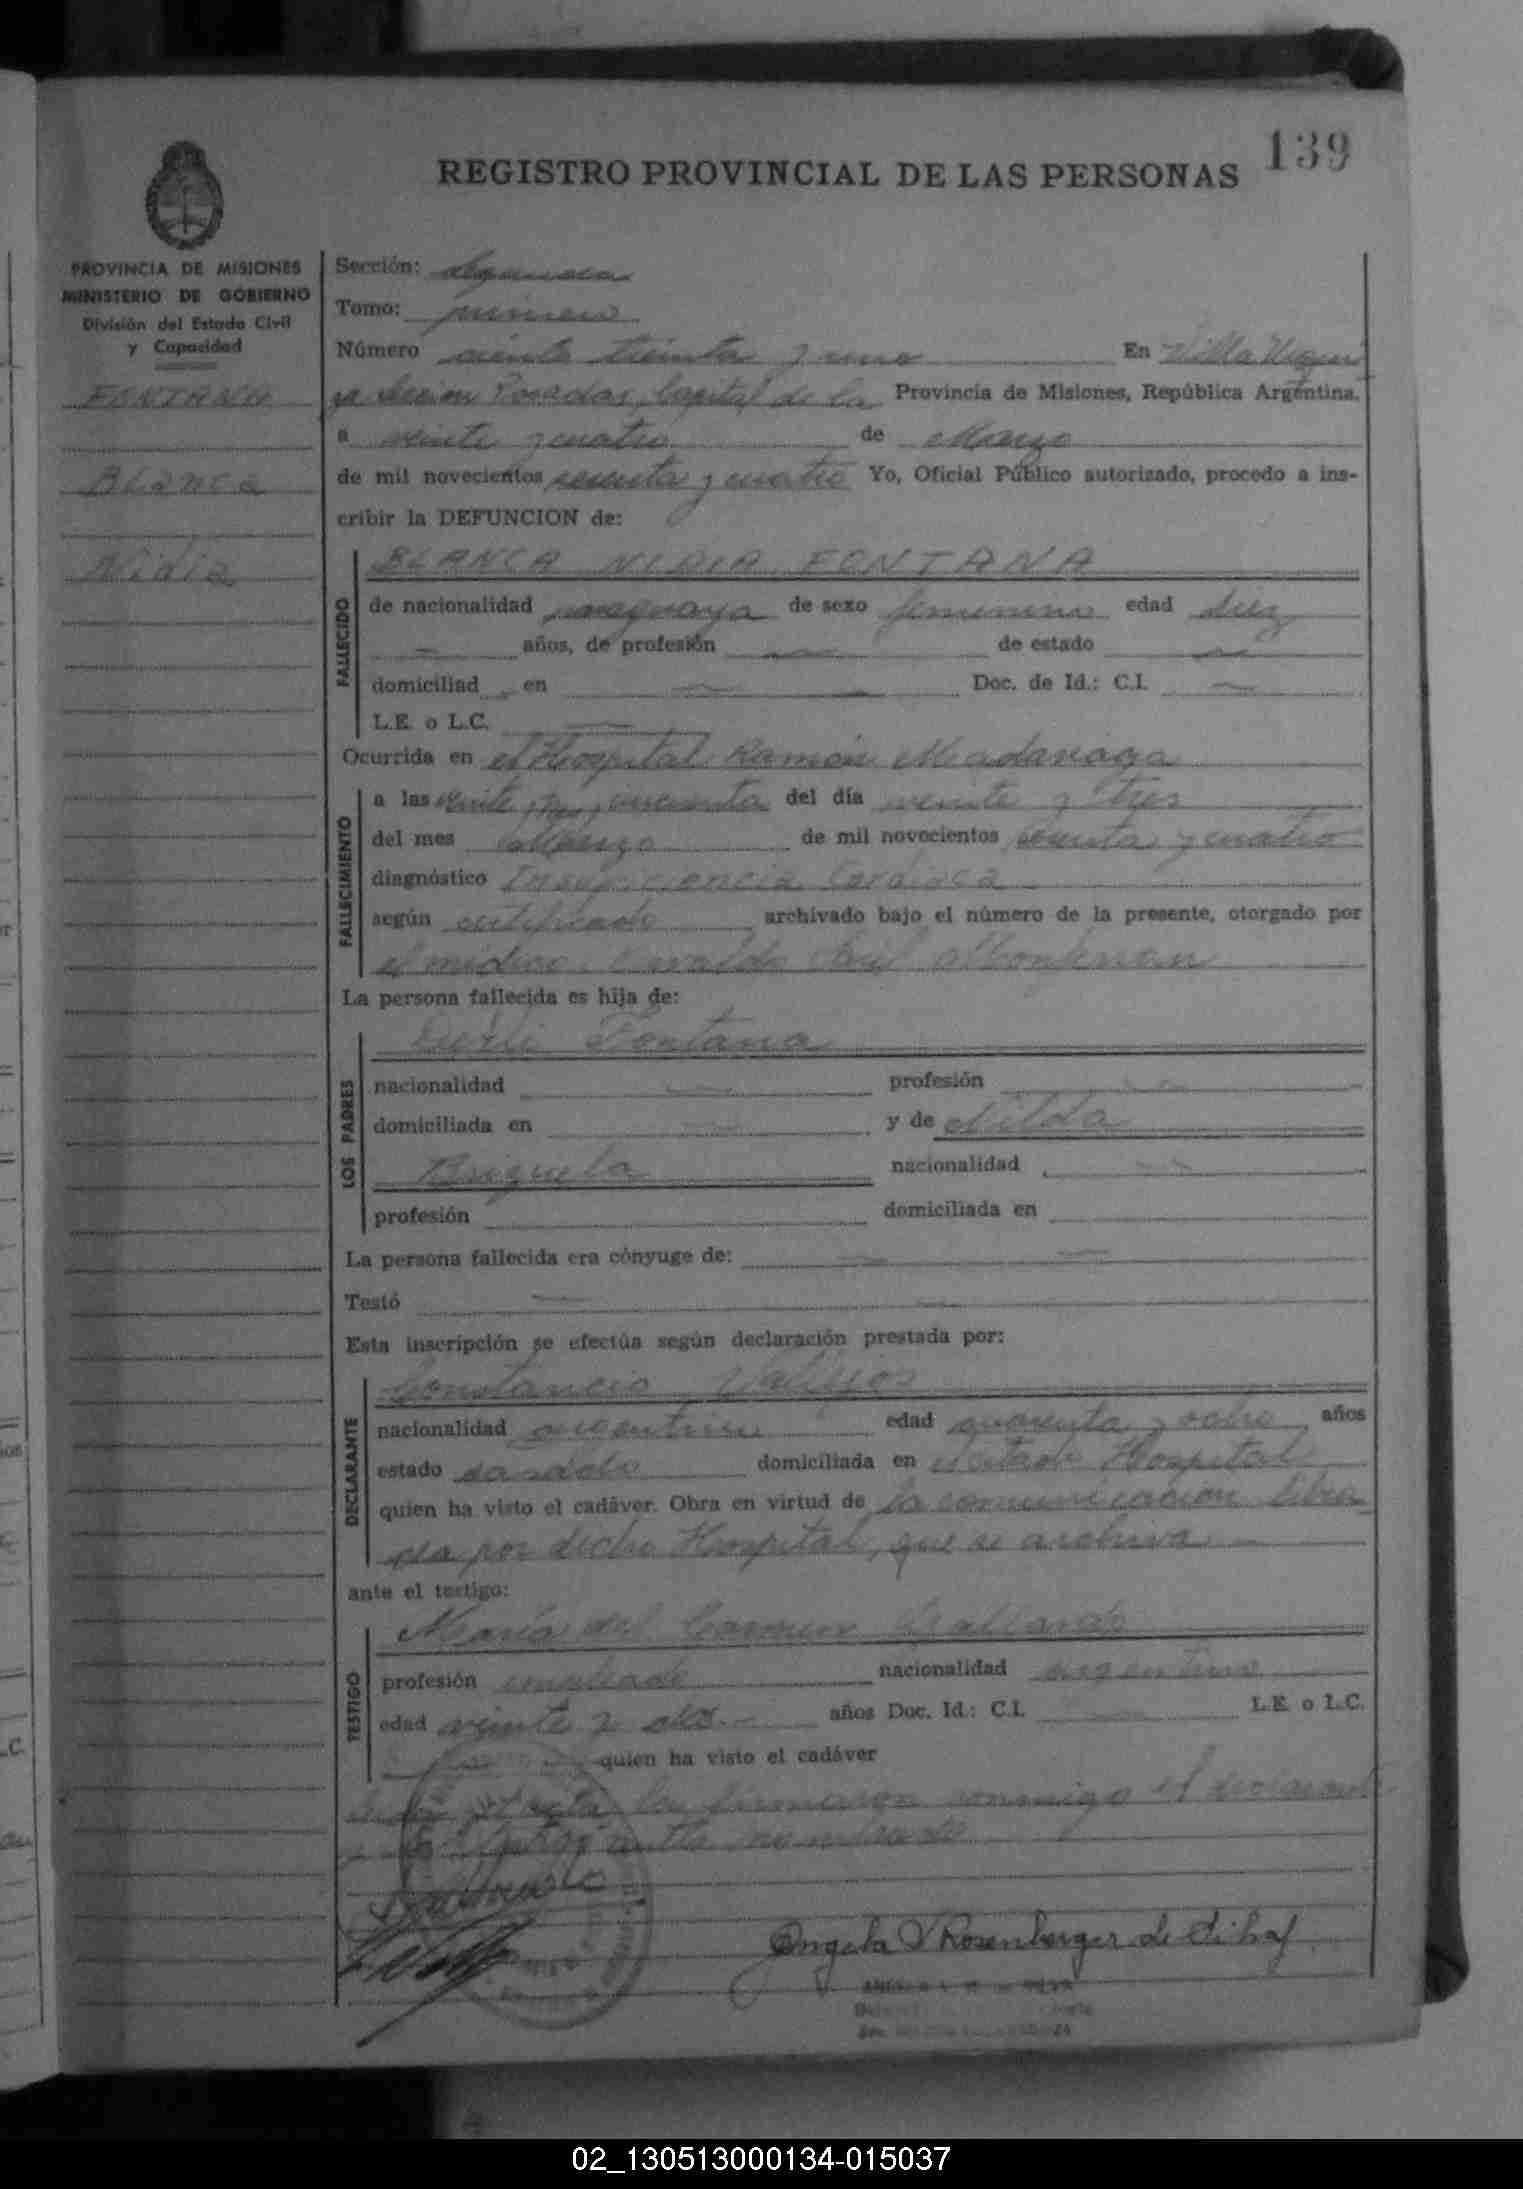 139
REGISTRO PROVINCIAL DE LAS PERSONAS
PROVINCIA DE MISIONES
MINISTERIO DE GOBIERNO
División del Estado Civil
y Capacidad
FONTANA
Blanca
Nidia
Sección: segunda
Tomo: primero
Número ciento treinta y uno En Villa Urqui
za Seccion Posadas, Capital de la Provincia de Misiones, República Argentina,
a veinte y cuatro de Marzo
de mil novecientos sesenta y cuatro Yo, Oficial Público autorizado, procedo a ins-
cribir la DEFUNCION de:
FALLECIDO
BLANCA NIDIA FONTANA
de nacionalidad paraguaya de sexo femenino edad diez
años, de profesión — de estado —
domiciliad en — Doc. de Id.: C.I. —
L.E. o L.C. —
Ocurrida en el Hospital Ramón Madariaga
FALLECIMIENTO
a las veinte, y cincuenta del día veinte y tres
del mes Marzo de mil novecientos sesenta y cuatro
diagnóstico Insuficiencia Cardiaca
según certificado archivado bajo el número de la presente, otorgado por
el médico
La persona fallecida es hija de:
LOS PADRES
Fontana
nacionalidad — profesión —
domiciliada en — y de Nilda
Brizuela nacionalidad —
profesión domiciliada en
La persona fallecida era cónyuge de: —
Testó —
Esta inscripción se efectúa según declaración prestada por:
DECLARANTE
Constancio Vallejos
nacionalidad argentino edad cuarenta y ocho años
estado casado domiciliada en el citado Hospital
quien ha visto el cadáver. Obra en virtud de la comunicación libra
da por dicho Hospital, que se archiva —
ante el testigo:
TESTIGO
María del Carmen Gallardo
profesión empleada nacionalidad argentina
edad veinte y dos.— años Doc. Id.: C.I. — L.E. o L.C.
quien ha visto el cadáver
acta la firmaron conmigo el declarante
Angela V Rosenberger de Silva
02_130513000134-015037